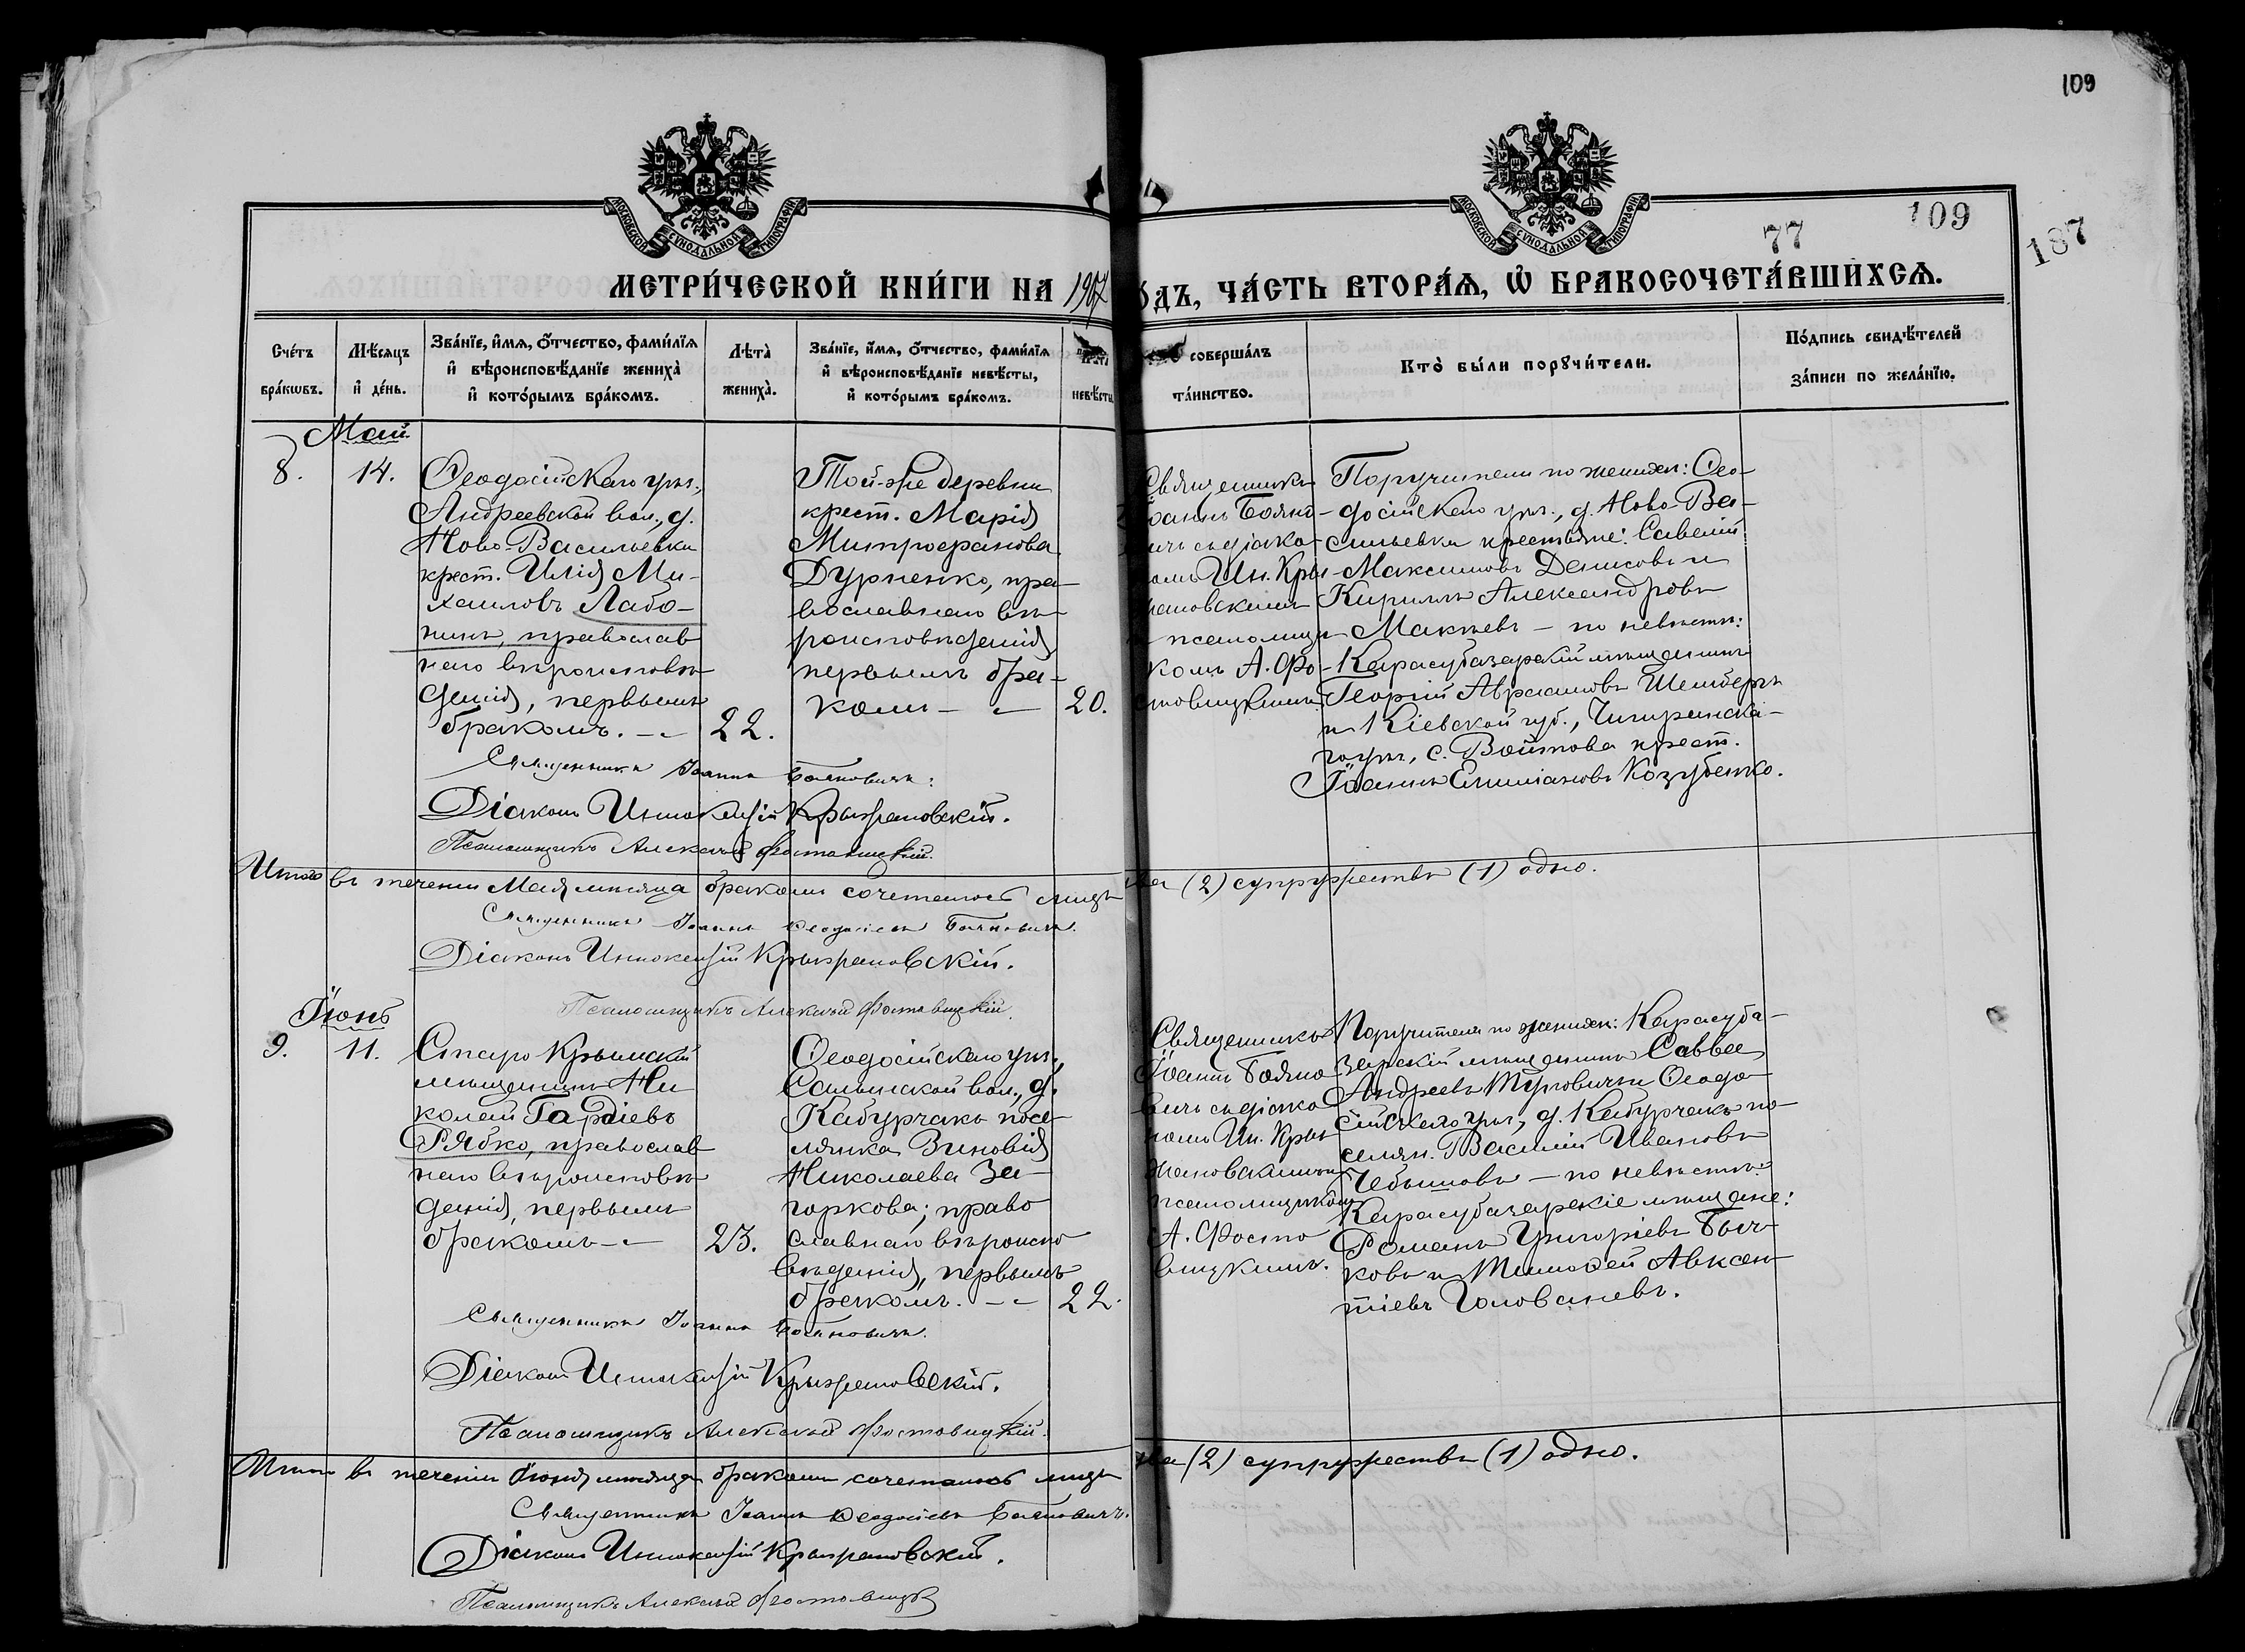 109
МОСКОВСКОЙ СѴНОДАЛЬНОЙ ТИПОГРАФІИ
МОСКОВСКОЙ СѴНОДАЛЬНОЙ ТИПОГРАФІИ
77
109
187
МЕТРИ́ЧЕСКОЙ КНИ́ГИ НА 1907
ОДЪ, ЧА́СТЬ ВТОРА́Ѧ, Ѽ БРАКОСОЧЕТА́ВШИХСѦ.
Сче́тъ бра́кѡвъ.
Мѣ́сяцъ и́ де́нь.
Зва́нїе, и́мѧ, ѻ́тчество, фами́лїѧ
и́ вѣроисповѣ́данїе жениха̀
и́ кото́рымъ бра́комъ.
Лѣта̀ жениха̀.
Зва́нїе, и́мѧ, ѻ́тчество, фами́лїѧ
и́ вѣроисповѣ́данїе невѣ́сты,
и́ кото́рымъ бра́комъ.
невѣ́сты
соверша́лъ
та́инство.
Кто̀ бы́ли порꙋчи́тели.
По́дпись свидѣ́телей
за́писи по жела́нїю.
Май
8.
14.
Ѳеодосійскаго уѣз.,
Андреевской вол., д.
Ново-Васильевки
крест. Илія Ми-
хаиловъ Лабо-
нинъ, православ
наго вѣроисповѣ
данія, первымъ
бракомъ. —
22.
Той-же деревни
крест. Марія
Митрофанова
Дурненко, пра-
вославнаго вѣ-
роисповѣданія
первымъ бра-
комъ —
20.
Священникъ
Іоаннъ Бояно-
вичъ съ діако-
номъ Ин. Кры-
жановскимъ
псаломщи-
комъ А. Фо-
стовицкимъ
Поручители по женихѣ: Ѳео-
досійскаго уѣз., д. Ново-Ва-
сильевки крестьяне: Савелій
Максимовъ Денисовъ и
Кириллъ Александровъ
Макѣевъ — по невѣстѣ:
Карасубазарскій мѣщанинъ
Георгій Авраамовъ Шемберъ
и Кіевской губ., Чигиринска-
го уѣз., с. Войтова крест.
Іоаннъ Емиліановъ Козубенко.
Священникъ Іоаннъ Бояновичъ.
Діаконъ Иннокентій Крыжановскій.
Псаломщикъ Алексѣй Фостовицкій.
Итого въ теченіи Мая мѣсяца бракомъ сочеталось лицъ
два (2) супружествъ (1) одно.
Священникъ Іоаннъ Ѳеодосіевъ Бояновичъ.
Діаконъ Иннокентій Крыжановскій.
Псаломщикъ Алексѣй Фостовицкій.
Іюнь
9.
11.
Старо Крымскій
мѣщанинъ Ни
колай Гордіевъ
Рябко, православ
наго вѣроисповѣ
данія, первымъ
бракомъ —
23.
Ѳеодосійскаго уѣз.,
Салынской вол., д.
Кабурчакъ посе-
лянка Зиновія
Николаева За-
горкова; право
славнаго вѣроиспо
вѣданія, первымъ
бракомъ. —
22.
Священникъ
Іоаннъ Бояно
вичъ съ діако
номъ Ин. Кры
жановскимъ и
псаломщикомъ
А. Фосто
вицкимъ.
Поручители по женихѣ: Карасуба-
зарскій мѣщанинъ Савва
Андреевъ Туровичъ и Ѳеодо
сійскаго уѣз., д. Кабурчакъ по-
селян. Василій Ивановъ
Чебышовъ — по невѣстѣ:
Карасубазарскіе мѣщане:
Романъ Григоріевъ Быч-
ковъ и Тимоѳей Авксен
тіевъ Голованевъ.
Священникъ Іоаннъ Бояновичъ.
Діаконъ Иннокентій Крыжановскій.
Псаломщикъ Алексѣй Фостовицкій.
Итого въ теченіи Іюня мѣсяца бракомъ сочеталось лицъ
два (2) супружествъ (1) одно.
Священникъ Іоаннъ Ѳеодосіевъ Бояновичъ.
Діаконъ Иннокентій Крыжановскій.
Псаломщикъ Алексѣй Фостовицкій